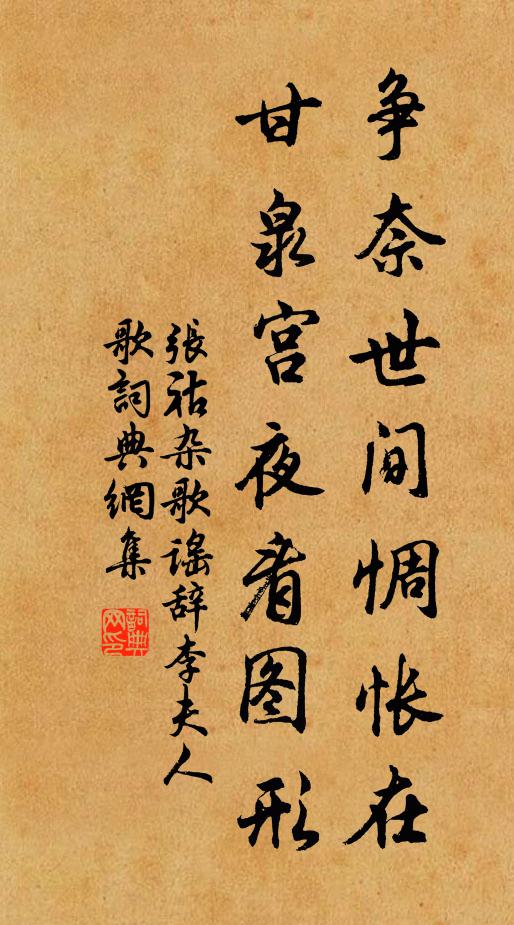 争奈世间惆怅在
甘泉宫夜看图形
張祜杂歌谣辞李夫人
歌詞典網集
詞典
网印